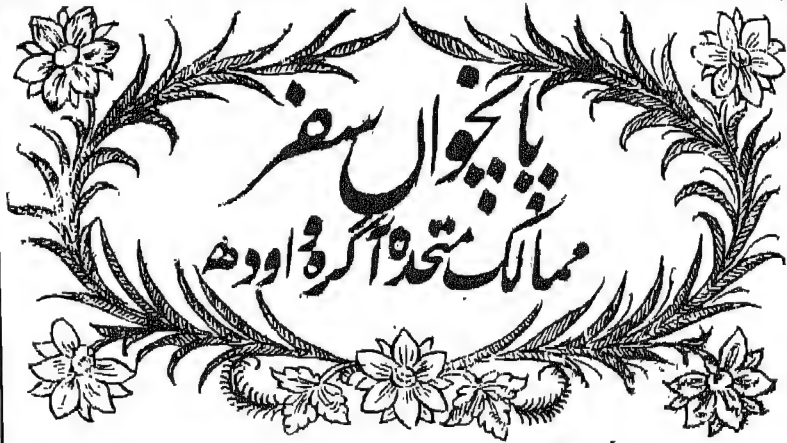 پانچواں سفر
ممالک متحدہ آگرہ و اودھ